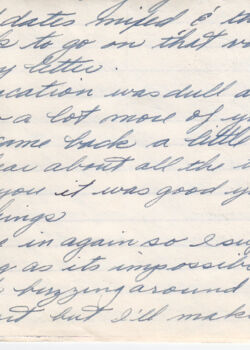 dates mixed & 
to go on that
letter.
cation was dull a
a lot more of y
came back a little
ear about all the
you it was good y
hings
e in again so I su
g as its impossib
buzzing around
but I'll mak